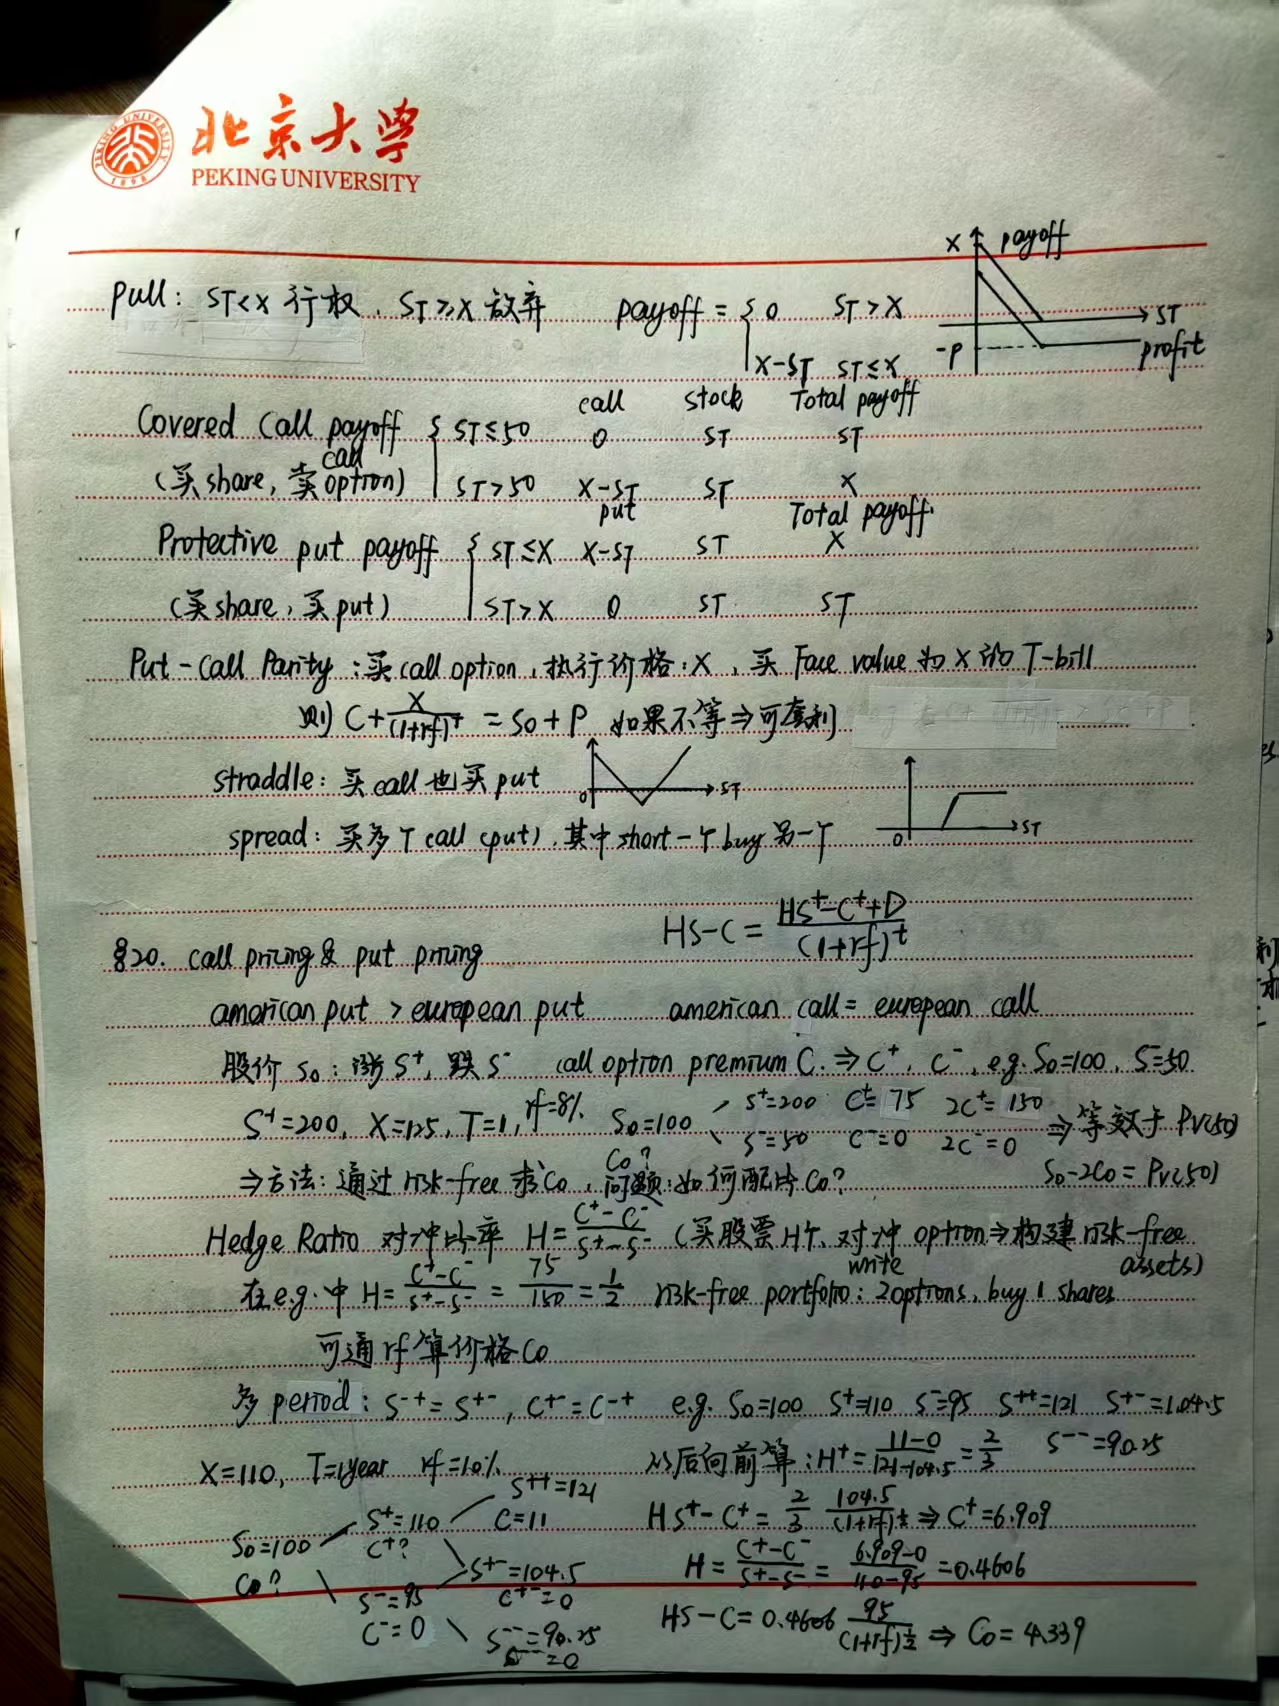 北京大学
PEKING UNIVERSITY
PEKING UNIVERSITY
1898
x payoff
Pull: ST<X 行权, ST≥X 放弃 payoff = { 0 ST>X
ST
-P profit
X-ST ST≤X
call stock Total payoff
Covered Call payoff { ST≤50 0 ST ST
(买share, 卖call option) ST>50 X-ST ST X
put Total payoff.
Protective put payoff { ST≤X X-ST ST X
(买share, 买put) ST>X 0 ST ST
Put-Call Parity: 买call option, 执行价格: X, 买 Face value 为 X 的 T-bill
则 C+X/(1+rf)^t = S0+P 如果不等⇒可套利
straddle: 买call也买put 0 ST
spread: 买多个call (put), 其中short一个buy另一个 0 ST
HS-C = (HS⁺-C⁺+D)/(1+rf)^t
§20. call pricing & put pricing
american put > european put american call = european call
股价 S0: 涨 S⁺, 跌 S⁻ call option premium C. ⇒ C⁺, C⁻, e.g. S0=100, S⁻=50
S⁺=200, X=125, T=1, rf=8% S0=100 S⁺=200 C⁺=75 2C⁺=150
S⁻=50 C⁻=0 2C⁻=0 ⇒ 等效于 PV(50)
C0?
⇒方法: 通过 risk-free 求C0, 问题: 如何配比 C0? S0-2C0=PV(50)
Hedge Ratio 对冲比率 H=(C⁺-C⁻)/(S⁺-S⁻) (买股票H个、对冲 option⇒构建risk-free assets)
write
在e.g.中 H=(C⁺-C⁻)/(S⁺-S⁻)=75/150=1/2 risk-free portfolio: 2options, buy 1 shares
可通rf算价格C0
多 period: S⁻⁺=S⁺⁻, C⁺⁻=C⁻⁺ e.g. S0=100 S⁺=110 S⁻=95 S⁺⁺=121 S⁺⁻=104.5
S⁻⁻=90.25
X=110, T=1year rf=10% 从后向前算: H⁺=(11-0)/(121-104.5)=2/3
S⁺⁺=121
S⁺=110 C=11 HS⁺-C⁺=2/3 104.5/(1+rf)^½ ⇒ C⁺=6.909
S0=100 C⁺?
C0? S⁺⁻=104.5 H=(C⁺-C⁻)/(S⁺-S⁻)=(6.909-0)/(110-95)=0.4606
S⁻=95 C⁺⁻=0
C⁻=0 S⁻⁻=90.25 HS-C=0.4606 95/(1+rf)^½ ⇒ C0=4.339
=0